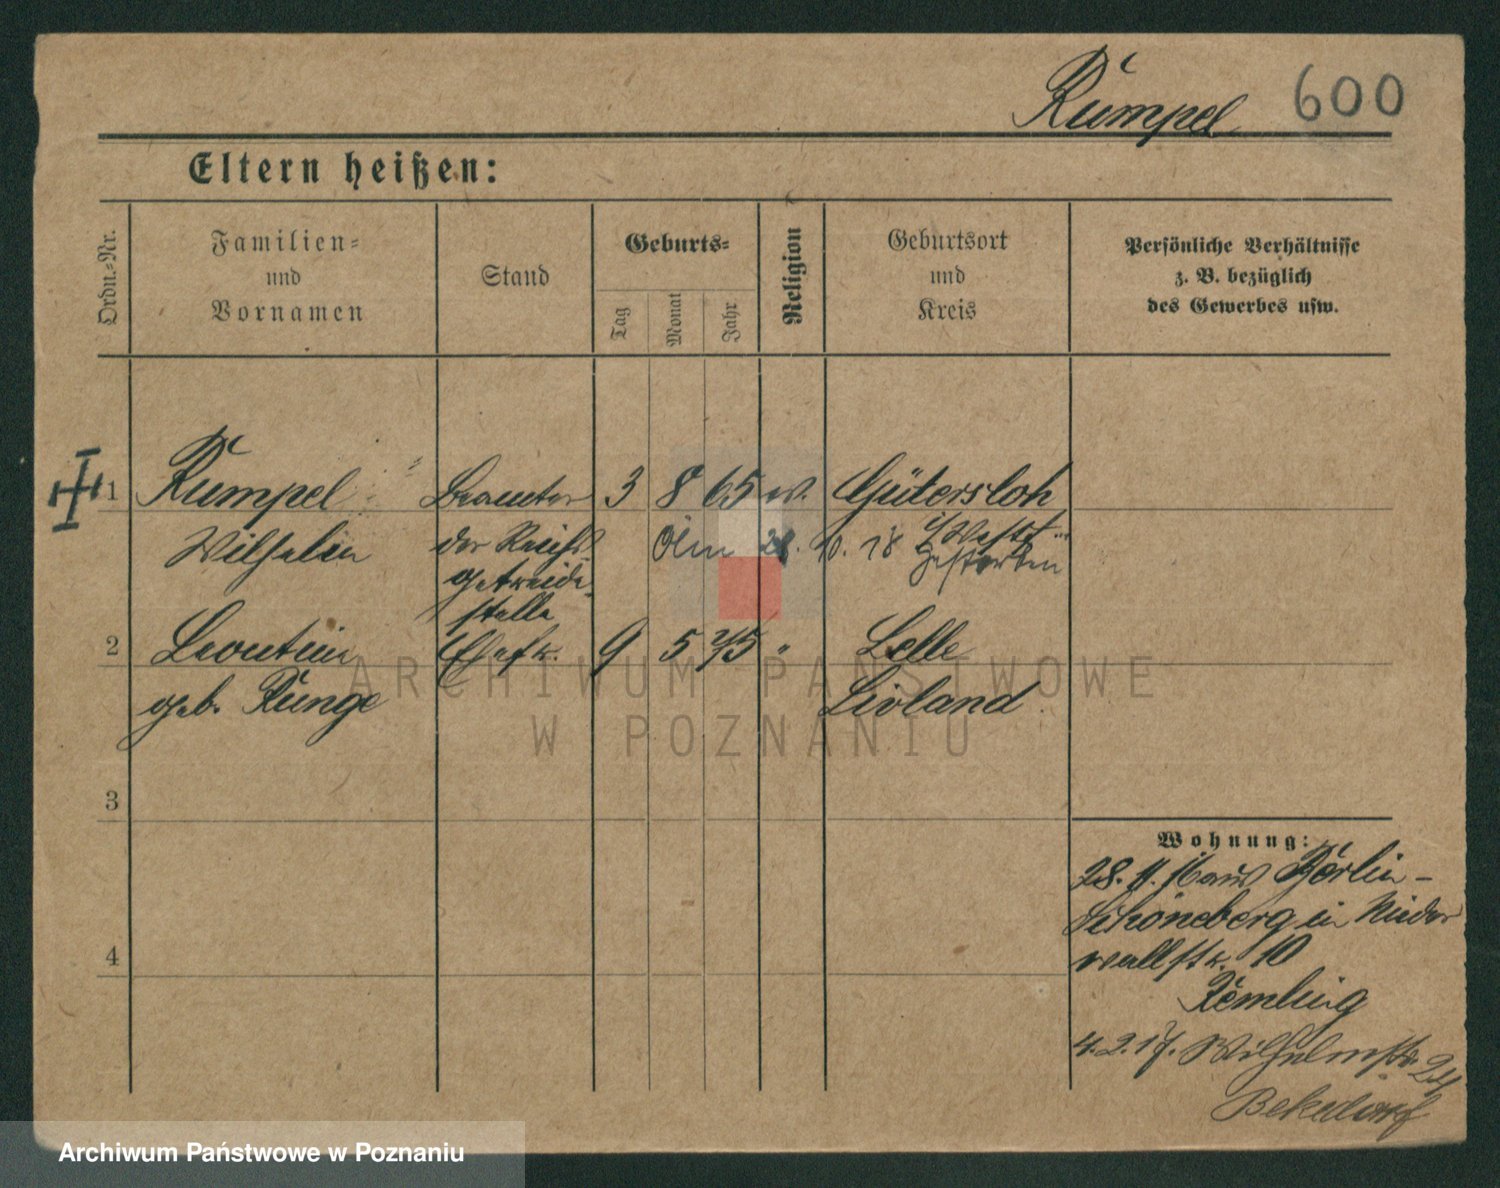 Rumpel 600
Eltern heißen:
Ordn.-Nr.
Familien-
und
Vornamen
Stand
Geburts-
Tag
Monat
Jahr
Religion
Geburtsort
und
Kreis
Persönliche Verhältnisse
z. B. bezüglich
des Gewerbes usw.
1 Rumpel Beamter 3 8 65 ev. Gütersloh
Wilhelm der Reichs- Am 28. 10. 18 i/Westf.
getreide- gestorben
stelle
2 Leontine Ehefr. 9 5 75 " Lelle
geb. Runge Livland
3
4
Wohnung:
28. 11. 16 aus Berlin-
Schöneberg in Nieder
wallstr. 10
4. 2. 17. Wilhelmstr. 24
ARCHIWUM PAŃSTWOWE
W POZNANIU
Archiwum Państwowe w Poznaniu